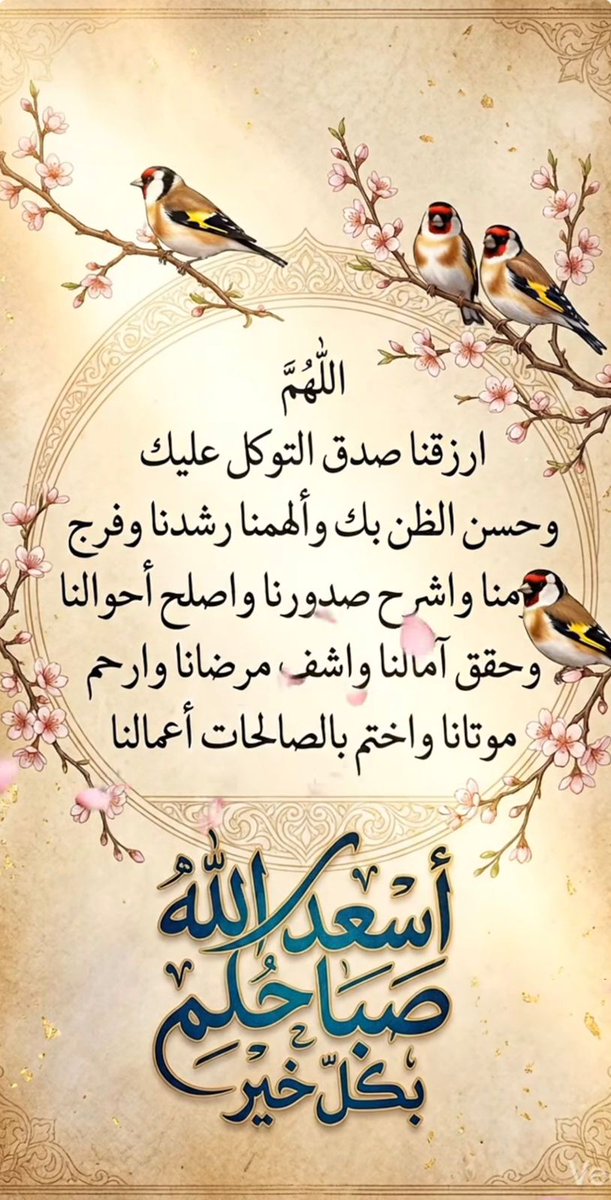 اللّٰهُمَّ
ارزقنا صدق التوكل عليك
وحسن الظن بك وألهمنا رشدنا وفرج
واشرح صدورنا واصلح أحوالنا
وحقق آمالنا واشف مرضانا وارحم
موتانا واختم بالصالحات أعمالنا
أسعد الله
صباحكم
بكل خير